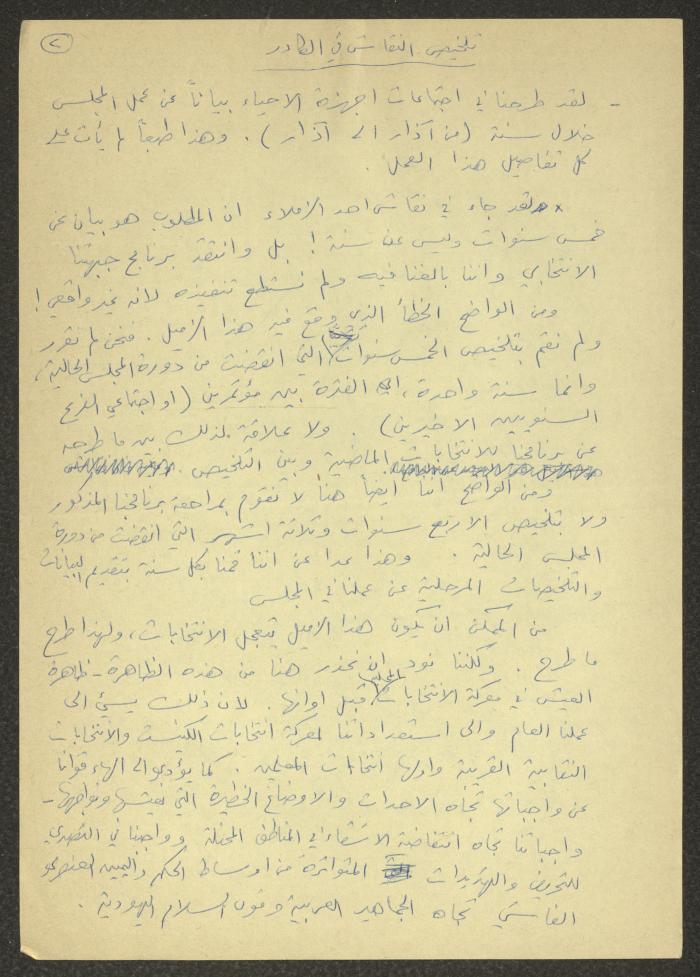 ٢
تلخيص النقاش في الكادر
- لقد طرحنا في اجتماعات اجهزة الاحياء بياناً عن عمل المجلس
خلال سنة (من آذار الى آذار). وهذا طبعاً لم يأت على
كل تفاصيل هذا العمل.
× لقد جاء في نقاش احد الزملاء ان المطلوب هو بيان عن
خمس سنوات وليس عن سنة! بل وانتقد برنامج جبهتنا
الانتخابي واننا بالغنا فيه ولم نستطع تنفيذه لانه غير واقعي!
ومن الواضح الخطأ الذي وقع فيه هذا الزميل. فنحن لم نقرر
ولم نقم بتلخيص الخمس سنوات التي انقضت من دورة المجلس الحالية،
وانما سنة واحدة، اي الفترة بين مؤتمرين (او اجتماعي الفرع
السنويين الاخيرين). ولا علاقة لذلك بين ما طرحه
عن برنامجنا للانتخابات الماضية وبين التلخيص.
ومن الواضح اننا ايضاً هنا لا نقوم بمراجعة برنامجنا المذكور
ولا بتلخيص الاربع سنوات وثلاثة اشهر التي انقضت من دورة
المجلس الحالية. وهذا عدا عن اننا قمنا بكل سنة بتقديم البيانات
والتلخيصات المرحلية عن عملنا في المجلس
من الممكن ان يكون هذا الزميل يتعجل الانتخابات، ولهذا طرح
ما طرح. ولكننا نود ان نحذر هنا من هذه الظاهرة - ظاهرة
العيش في معركة الانتخابات المحلية قبل اوانها. لان ذلك يسيء الى
عملنا العام والى استعداداتنا لمعركة انتخابات الكنيست والانتخابات
النقابية القريبة واولها انتخابات المعلمين. كما يؤدي الى الهاء قوانا
عن واجباتها تجاه الاحداث والاوضاع الخطيرة التي نعيشها ونواجهها -
واجباتنا تجاه انتفاضة الاشقاء في المناطق المحتلة وواجبنا في التصدي
للتحريض والتهديدات المتواترة من اوساط الحكم واليمين العنصري
الفاشي تجاه الجماهير العربية وقوى السلام اليهودية.